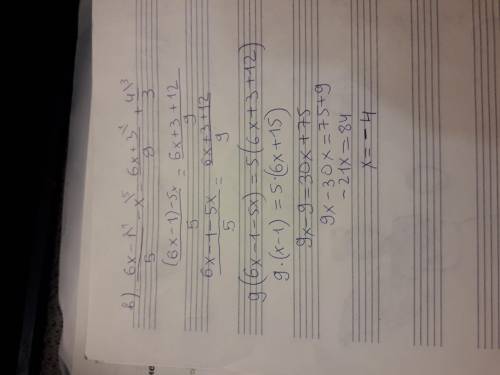 в) (6x-1)/5 - x = (6x+3)/9 + 4/3
((6x-1)-5x)/5 = (6x+3+12)/9
(6x-1-5x)/5 = (6x+3+12)/9
9(6x-1-5x)=5(6x+3+12)
9·(x-1)=5·(6x+15)
9x-9=30x+75
9x-30x=75+9
-21x=84
x=-4